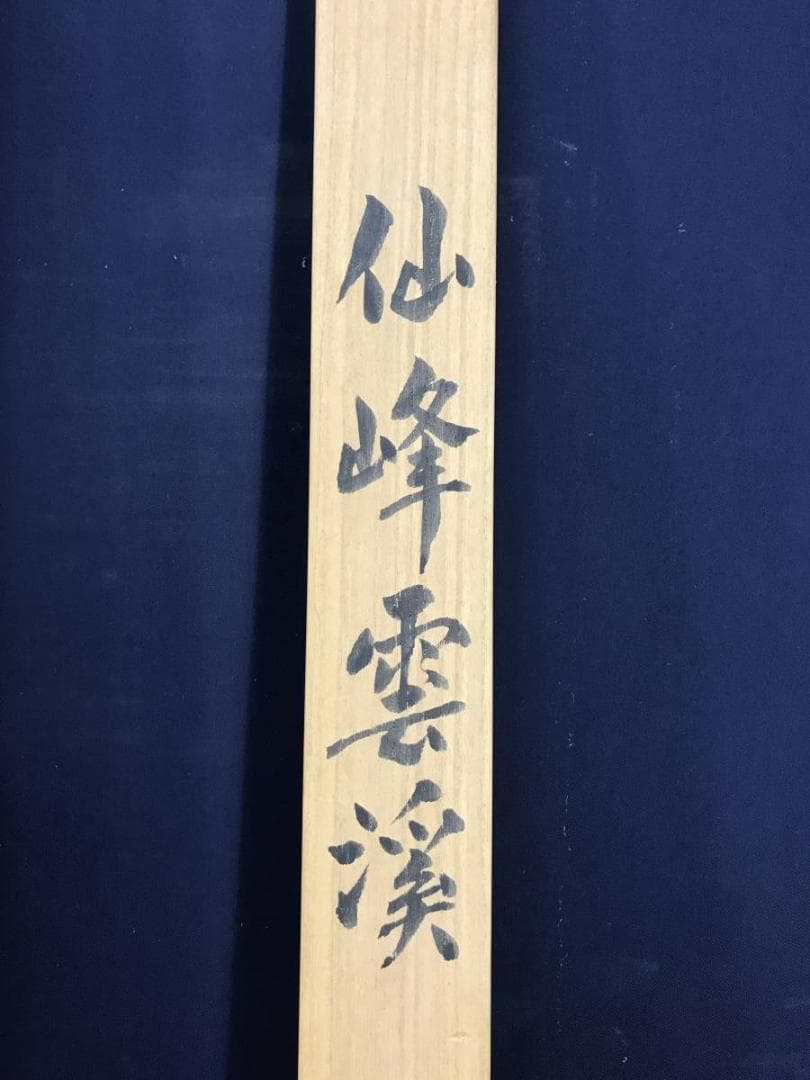 仙峰雲溪